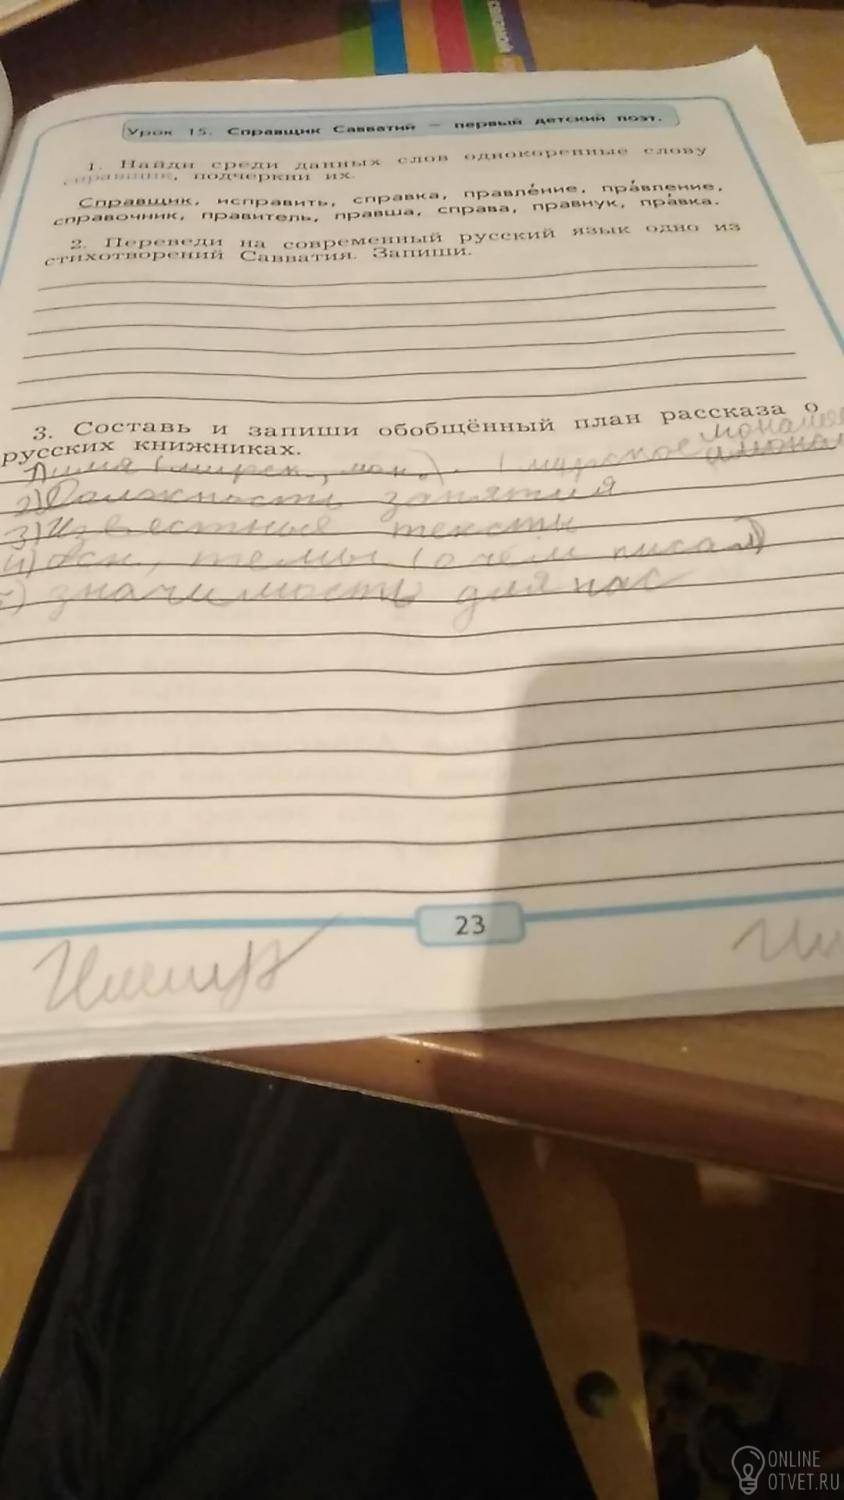 Урок 15. Справщик Савватий – первый детский поэт.
1. Найди среди данных слов однокоренные слову
справщик, подчеркни их.
Справщик, исправить, справка, правле́ние, пра́вление,
справочник, правитель, правша, справа, правнук, пра́вка.
2. Переведи на современный русский язык одно из
стихотворений Савватия. Запиши.
3. Составь и запиши обобщённый план рассказа о
русских книжниках.
1) имя (мирск., мон.) (мирское
2) Должность занятия
3) Известные тексты
4) Осн. темы (о чём писал)
5) значимость для нас
23
ONLINE
OTVET.RU